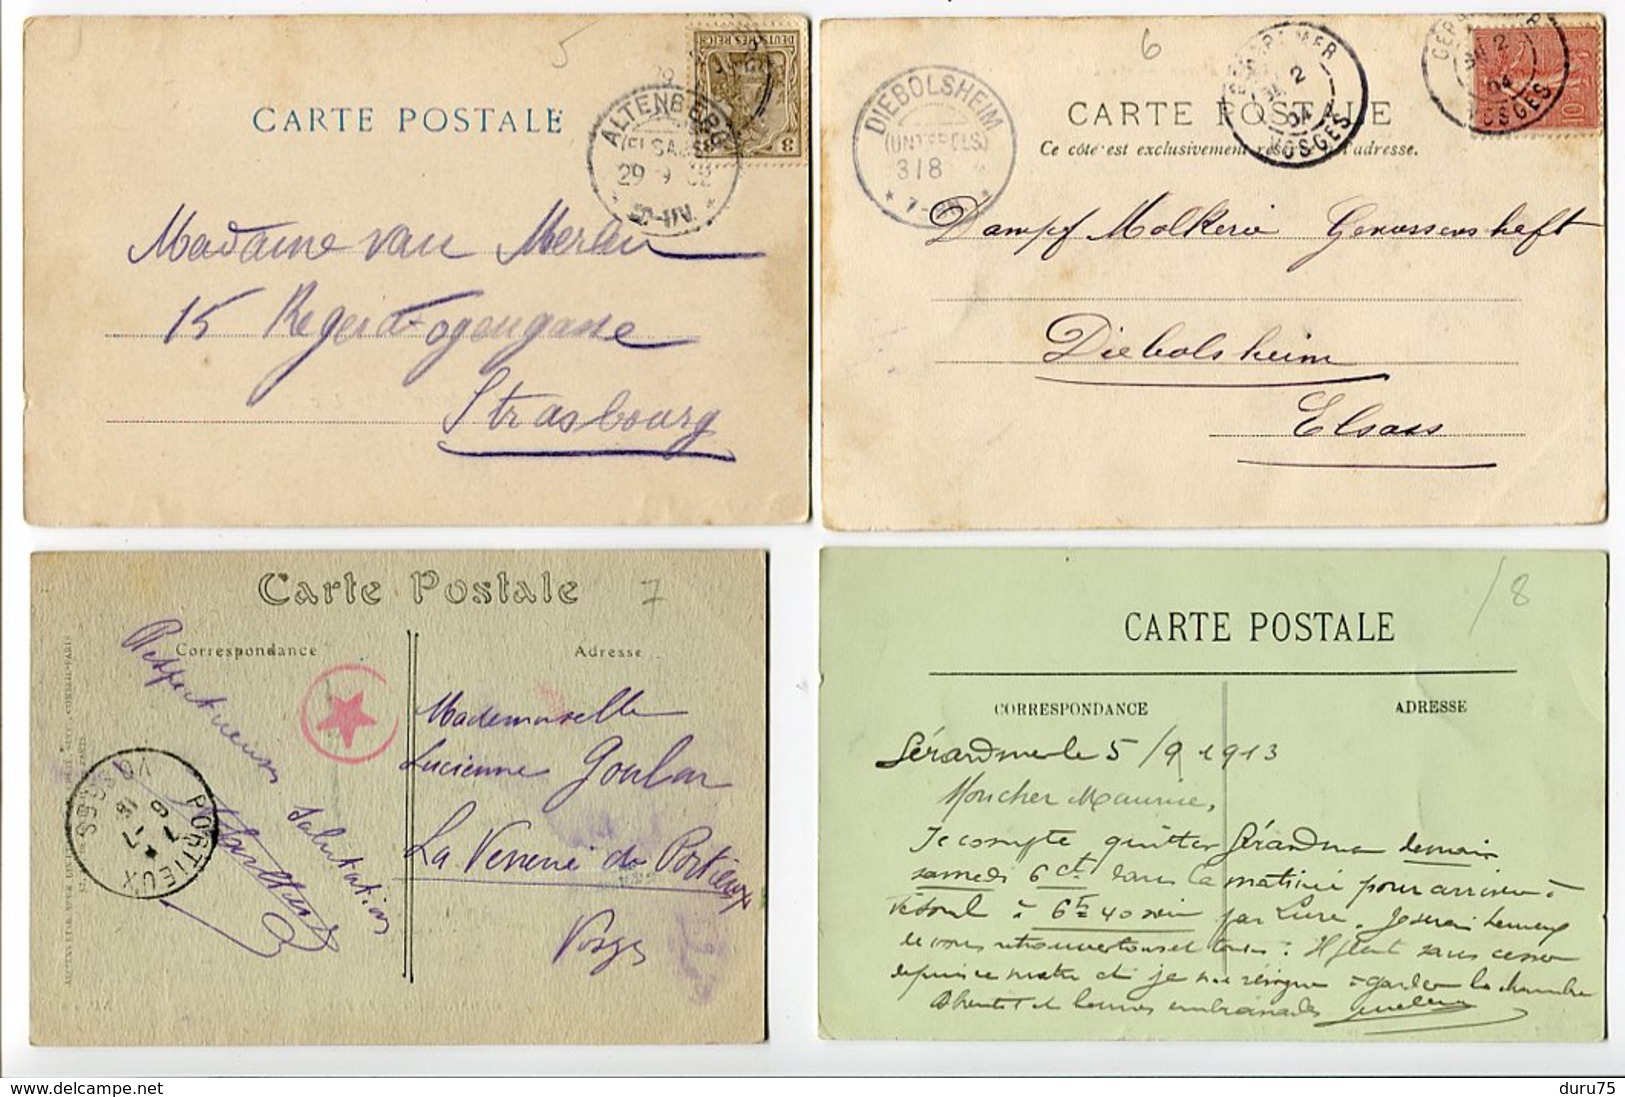 5
DEUTSCHES REICH
3
3
CARTE POSTALE
ALTENBERG
(ELSASS)
29 9 02
Madame van Merlen
15
Strasbourg
6
GERARDMER
2
04
VOSGES
GERARDMER
2
04
VOSGES
10
DIEBOLSHEIM
(UNTERELS.)
3/8
* 7- *
CARTE POSTALE
Ce côté est exclusivement réservé à l'adresse.
Dampf Molkerei Genossenshaft
Diebolsheim
Elsass
Carte Postale
7
Correspondance
Adresse
Respectueuses
Salutations
PORTIEUX
VOSGES
Mademoiselle
Lucienne
La Verrerie de Portieux
Vosges
/8
CARTE POSTALE
CORRESPONDANCE
ADRESSE
Gérardmer le 5/9 1913
Mon cher Maurice,
Je compte quitter Gérardmer demain
samedi 6 ct dans la matinée pour arriver à
Vesoul à 6h 40 soir par Lure. Je serai heureux
de vous retrouver tous et toutes. Il pleut sans cesse
depuis ce matin et je me résigne à garder la chambre
et bonnes embrassades
duru75